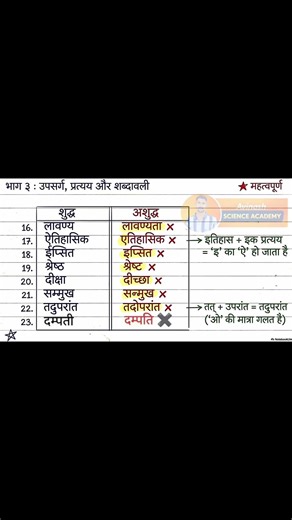 भाग ३ : उपसर्ग, प्रत्यय और शब्दावली ★ महत्वपूर्ण
SCIENCE ACADEMY
शुद्ध अशुद्ध
16. लावण्य लावण्यता ×
17. ऐतिहासिक एतिहासिक × → इतिहास + इक प्रत्यय
= 'इ' का 'ऐ' हो जाता है
18. ईप्सित इप्सित ×
19. श्रेष्ठ श्रेष्ट ×
20. दीक्षा दीच्छा ×
21. सम्मुख सन्मुख ×
22. तदुपरांत तदोपरांत × → तत् + उपरांत = तदुपरांत
('ओ' की मात्रा गलत है)
23. दम्पती दम्पति ×